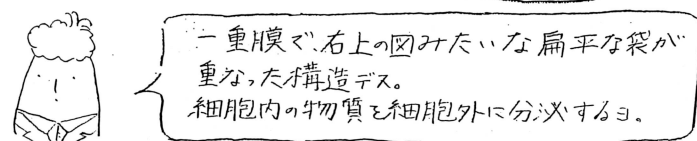 一重膜で、右上の図みたいな扁平な袋が
重なった構造デス。
細胞内の物質を細胞外に分泌するヨ。